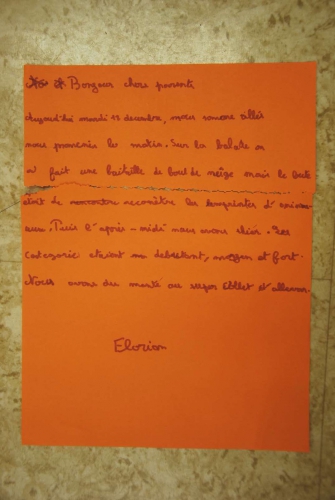 Bonjour chere parents
Aujourd'hui mardi 15 decembre, nous somme allés
nous promenés le matin. Sur la balade on
a fait une bataille de boul de neige mais le but
était de reconètre les empreintes d'animaux
aux. Puis l'après-midi nous avons skier. Les
categorie etaient debutent, moyen et fort.
Nous avons du monté au
Elorian